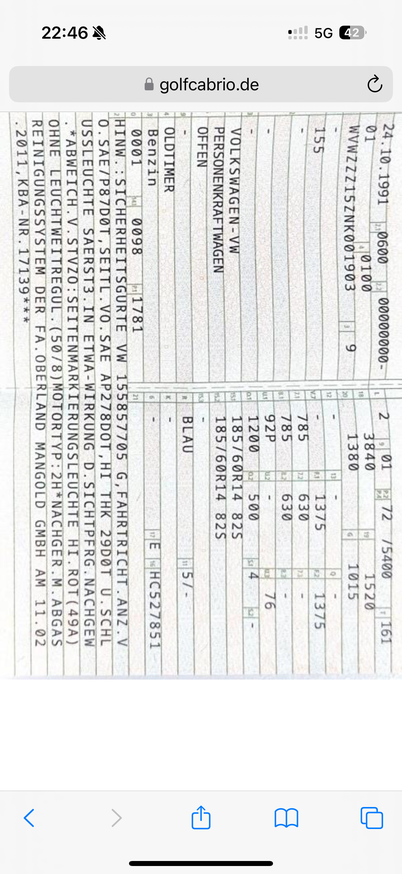 22:46
5G 42
golfcabrio.de
24.10.1991 0600 000000000-
01 0100
WVWZZZ15ZNK001903 9
-
155
-
-
-
VOLKSWAGEN-VW
PERSONENKRAFTWAGEN
OFFEN
-
OLDTIMER
Benzin
0001 0098 1781
2 01 72 /5400 161
3840 1520
1380 1015
- - -
- 1375 1375
785 630 -
785 630 -
92P - 76
1200 500 4 -
185/60R14 82S
185/60R14 82S
-
BLAU 5/-
-
- E HC527851
HINW.:SICHERHEITSGURTE VW 155857705 G,FAHRTRICHT.ANZ.V
O.SAE/P87D0T,SEITL.VO.SAE AP278D0T,HI THK 29D0T U.SCHL
USSLEUCHTE SAERST3.IN ETWA-WIRKUNG D.SICHTPFRG.NACHGEW
.*ABWEICH.V.STVZO:SEITENMARKIERUNGSLEUCHTE HI ROT(49A)
OHNE LEUCHTWEITREGUL.(50/8)MOTORTYP:2H*NACHGER.M.ABGAS
REINIGUNGSSYSTEM DER FA.OBERLAND MANGOLD GMBH AM 11.02
.2011,KBA-NR.17139***